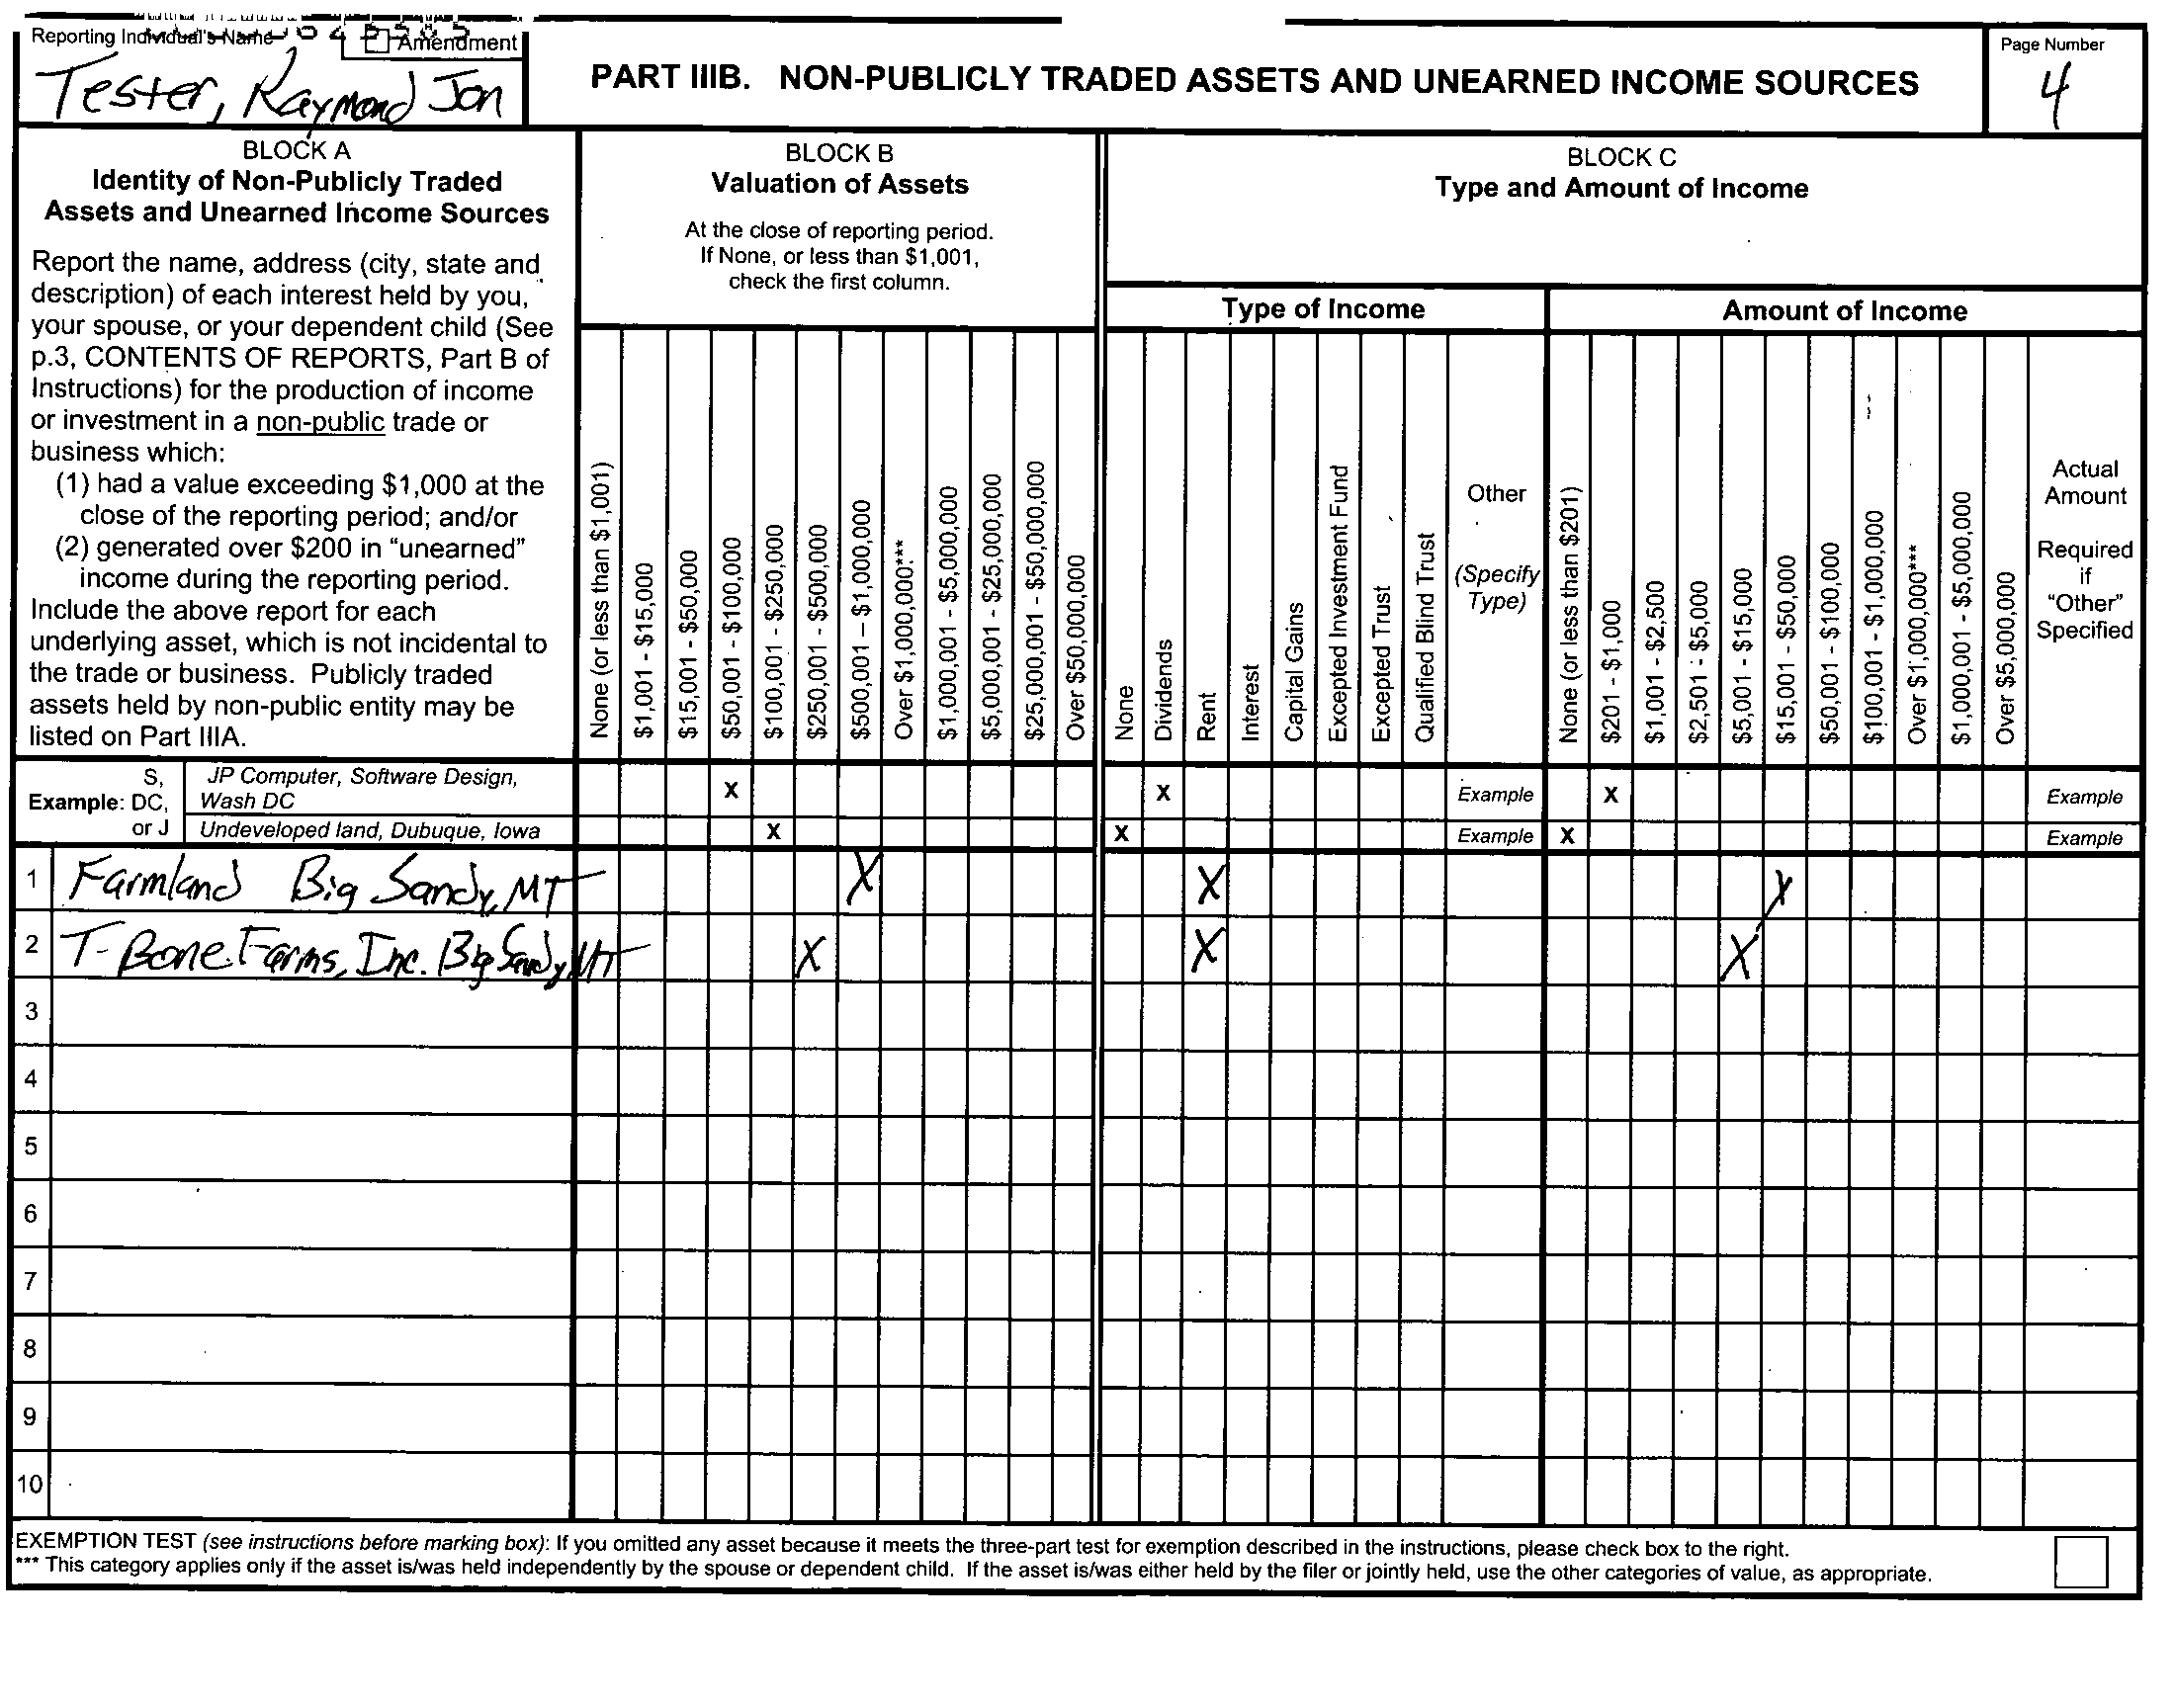 Reporting Individual's Name
Amendment
Tester, Raymond Jon
PART IIIB. NON-PUBLICLY TRADED ASSETS AND UNEARNED INCOME SOURCES
Page Number
4
BLOCK A
Identity of Non-Publicly Traded
Assets and Unearned Income Sources
Report the name, address (city, state and
description) of each interest held by you,
your spouse, or your dependent child (See
p.3, CONTENTS OF REPORTS, Part B of
Instructions) for the production of income
or investment in a non-public trade or
business which:
(1) had a value exceeding $1,000 at the
close of the reporting period; and/or
(2) generated over $200 in “unearned”
income during the reporting period.
Include the above report for each
underlying asset, which is not incidental to
the trade or business. Publicly traded
assets held by non-public entity may be
listed on Part IIIA.
BLOCK B
Valuation of Assets
At the close of reporting period.
If None, or less than $1,001,
check the first column.
None (or less than $1,001)
$1,001 - $15,000
$15,001 - $50,000
$50,001 - $100,000
$100,001 - $250,000
$250,001 - $500,000
$500,001 – $1,000,000
Over $1,000,000***
$1,000,001 - $5,000,000
$5,000,001 - $25,000,000
$25,000,001 - $50,000,000
Over $50,000,000
BLOCK C
Type and Amount of Income
Type of Income
None
Dividends
Rent
Interest
Capital Gains
Excepted Investment Fund
Excepted Trust
Qualified Blind Trust
Other
(Specify
Type)
Amount of Income
None (or less than $201)
$201 - $1,000
$1,001 - $2,500
$2,501 - $5,000
$5,001 - $15,000
$15,001 - $50,000
$50,001 - $100,000
$100,001 - $1,000,000
Over $1,000,000***
$1,000,001 - $5,000,000
Over $5,000,000
Actual
Amount
Required
if
“Other”
Specified
Example: S,
DC,
or J
JP Computer, Software Design,
Wash DC
X X Example X Example
Undeveloped land, Dubuque, Iowa X X Example X Example
1 Farmland Big Sandy, MT X X X
2 T-Bone Farms, Inc. Big Sandy, MT X X X
3
4
5
6
7
8
9
10
EXEMPTION TEST (see instructions before marking box): If you omitted any asset because it meets the three-part test for exemption described in the instructions, please check box to the right.
*** This category applies only if the asset is/was held independently by the spouse or dependent child. If the asset is/was either held by the filer or jointly held, use the other categories of value, as appropriate.